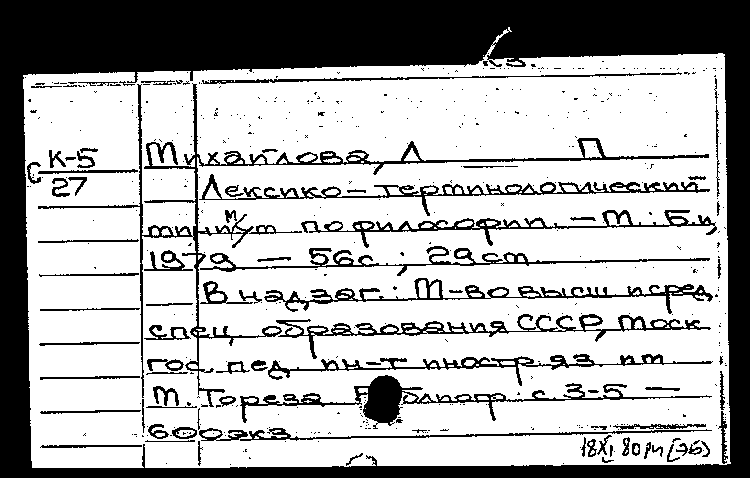 К-5
С 27
Михайлова, Л П
Лексико-терминологический
минимум по философии. — М.: Б.и,
1979 — 56с.; 29см
В надзаг.: М-во высш и сред.
спец. образования СССР, Моск
гос. пед. ин-т иностр. яз. им
М. Тореза Библиогр: с. 3-5 —
600экз.
18 XI 80